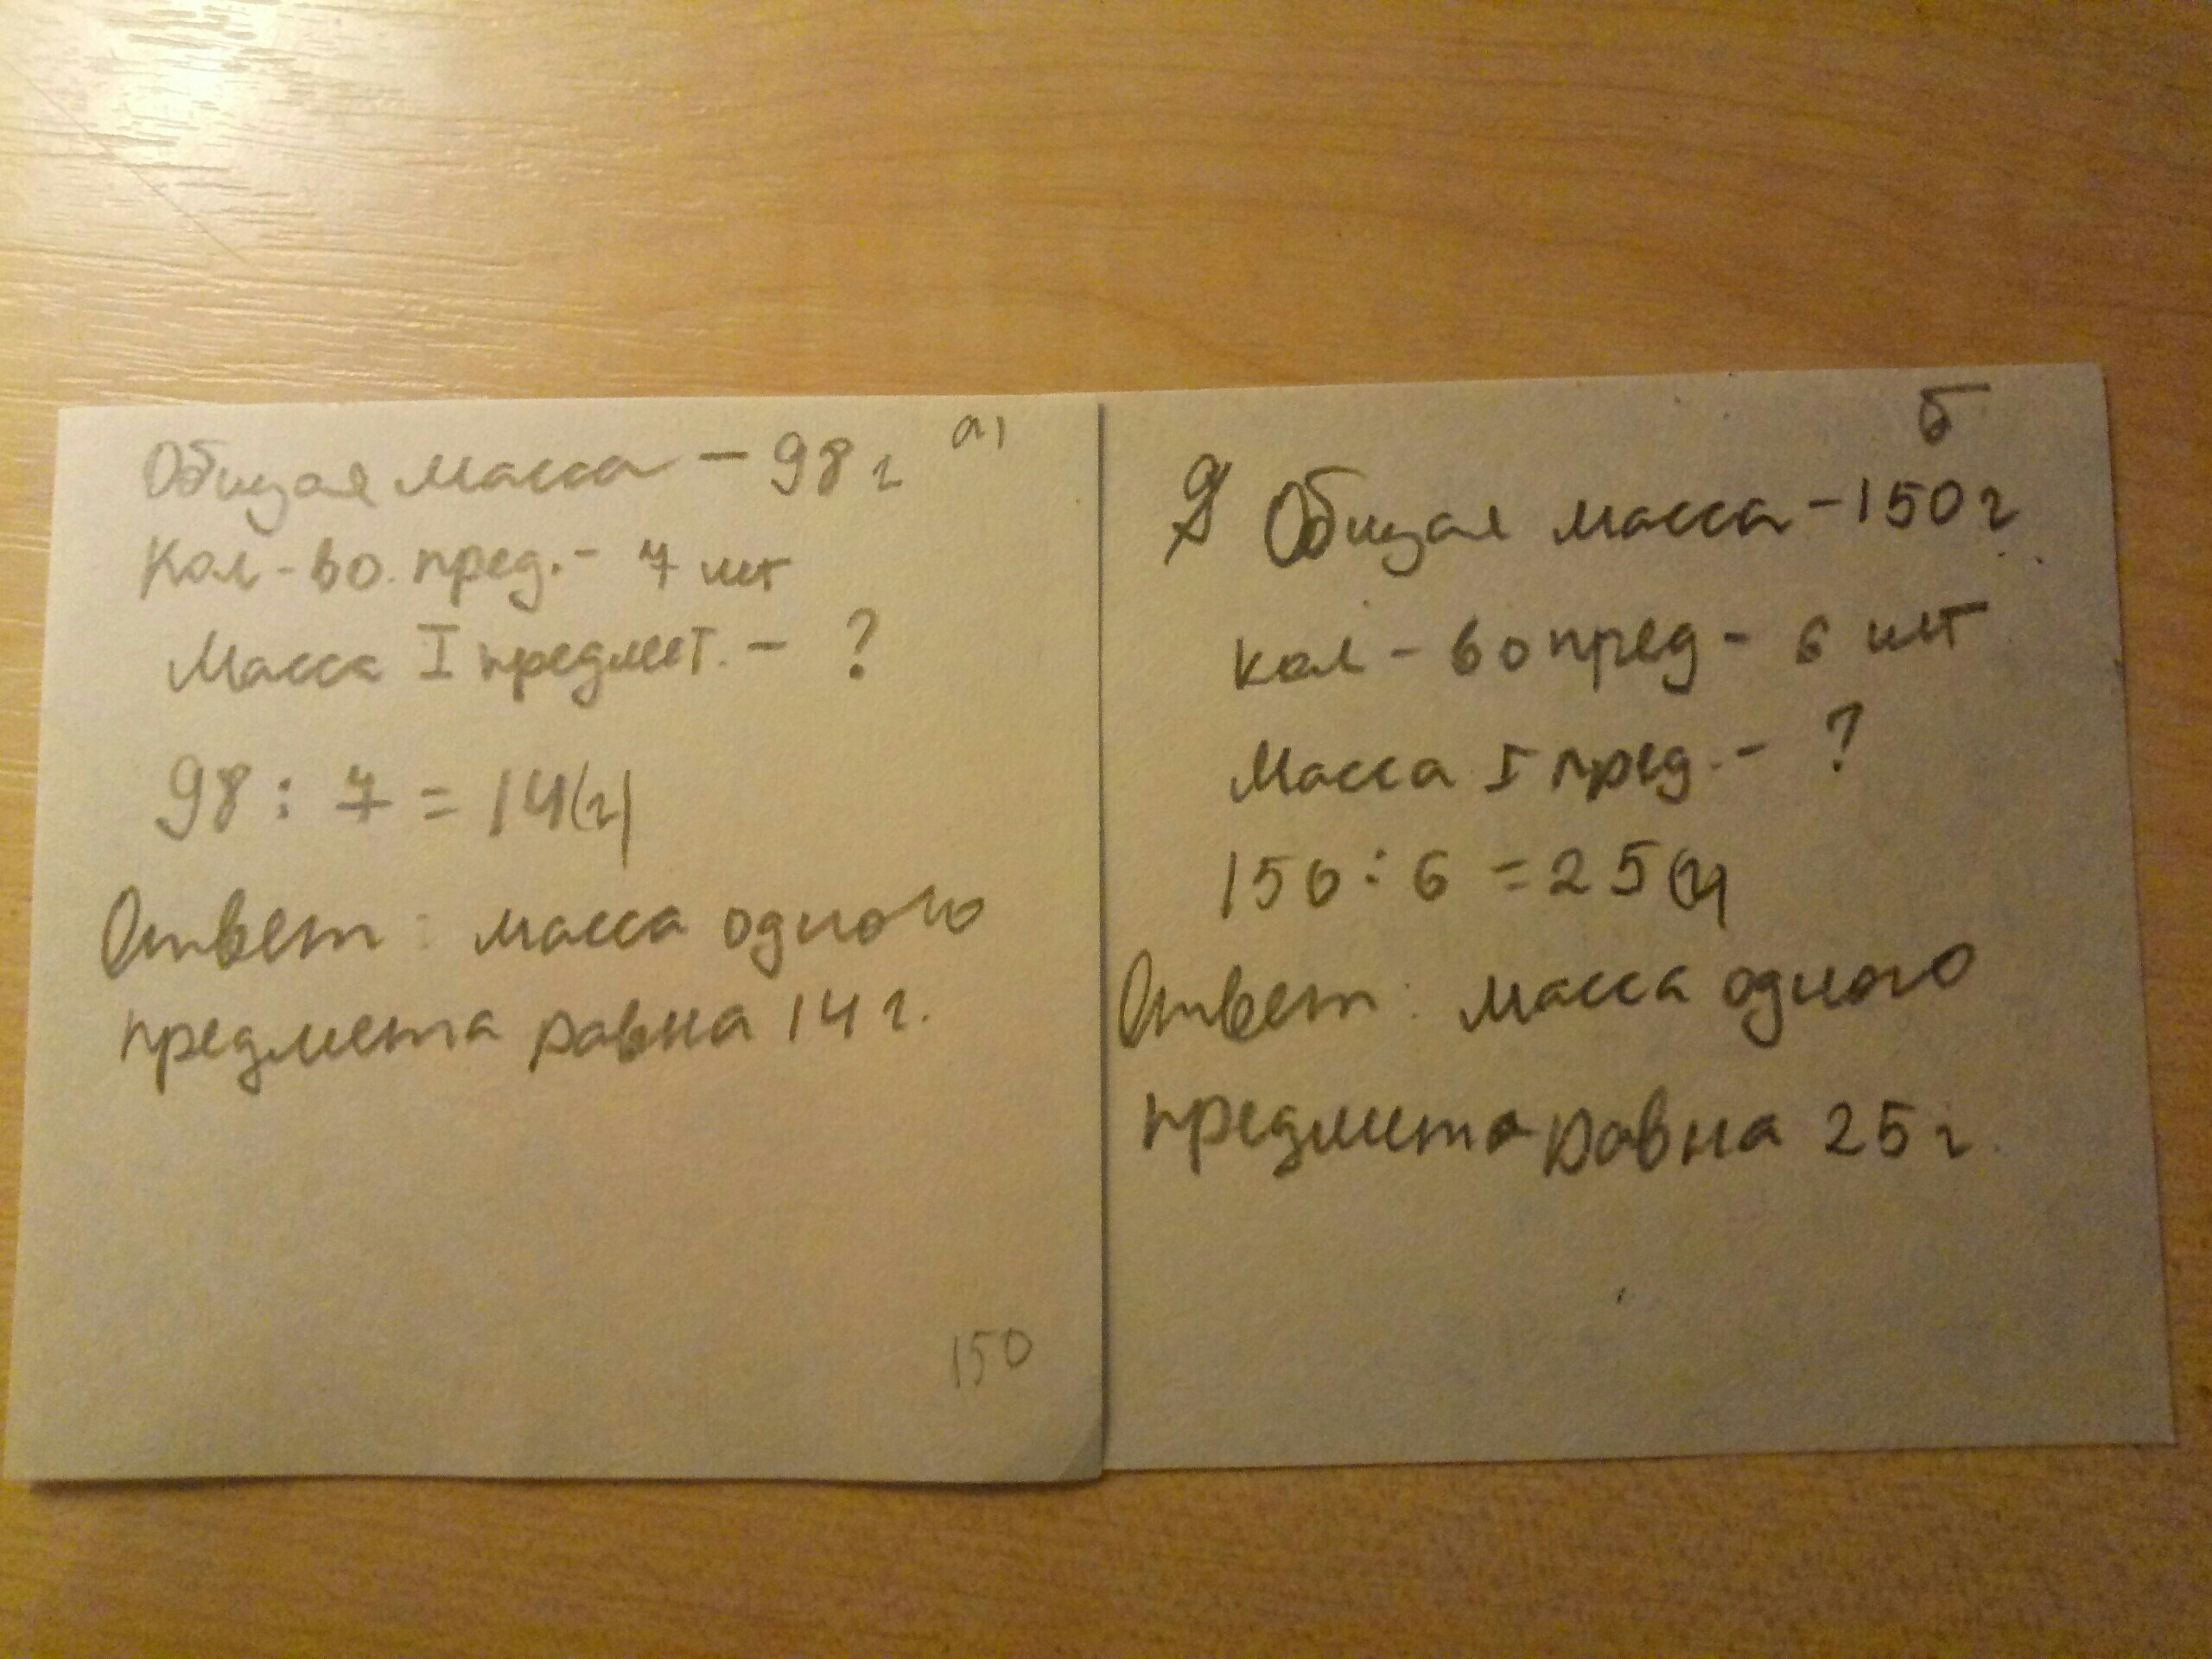 а)
Общая масса - 98 г
Кол-во. пред. - 7 шт
Масса I предмет. - ?
98 : 7 = 14(г)
Ответ: масса одного
предмета равна 14 г.
150
б
Общая масса - 150 г
кол-во пред - 6 шт
Масса I пред. - ?
150 : 6 = 25(г)
Ответ: масса одного
предмета равна 25 г.